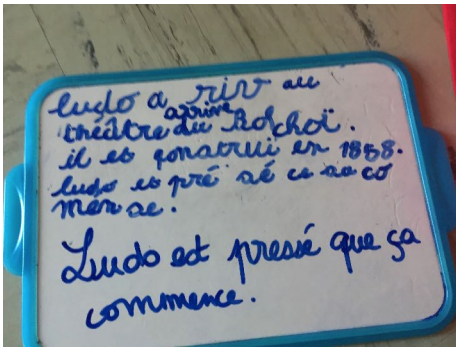 ludo a riv au
arrive
théâtre du Bolchoï.
il es qonstrui en 1858.
ludo es pré sé ce sa co
mén se.
Ludo est pressé que ça
commence.